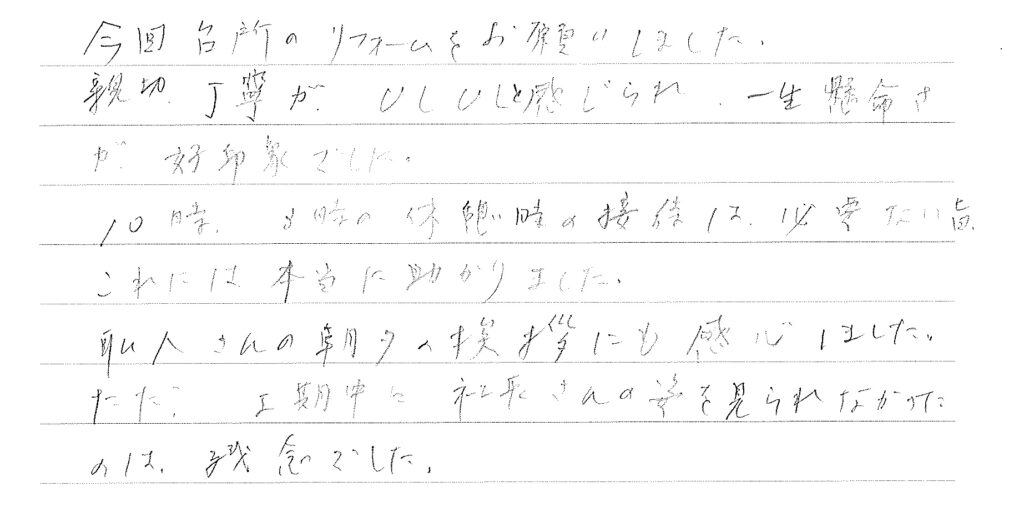 今回台所のリフォームをお願いしました。
親切、丁寧が、ひしひしと感じられ、一生懸命さ
が、好印象でした。
10時、3時の休憩時の接待は、必要ない旨、
これには本当に助かりました。
職人さんの朝夕の挨拶にも感心しました。
ただ、工期中に社長さんの姿を見られなかった
のは、残念でした。